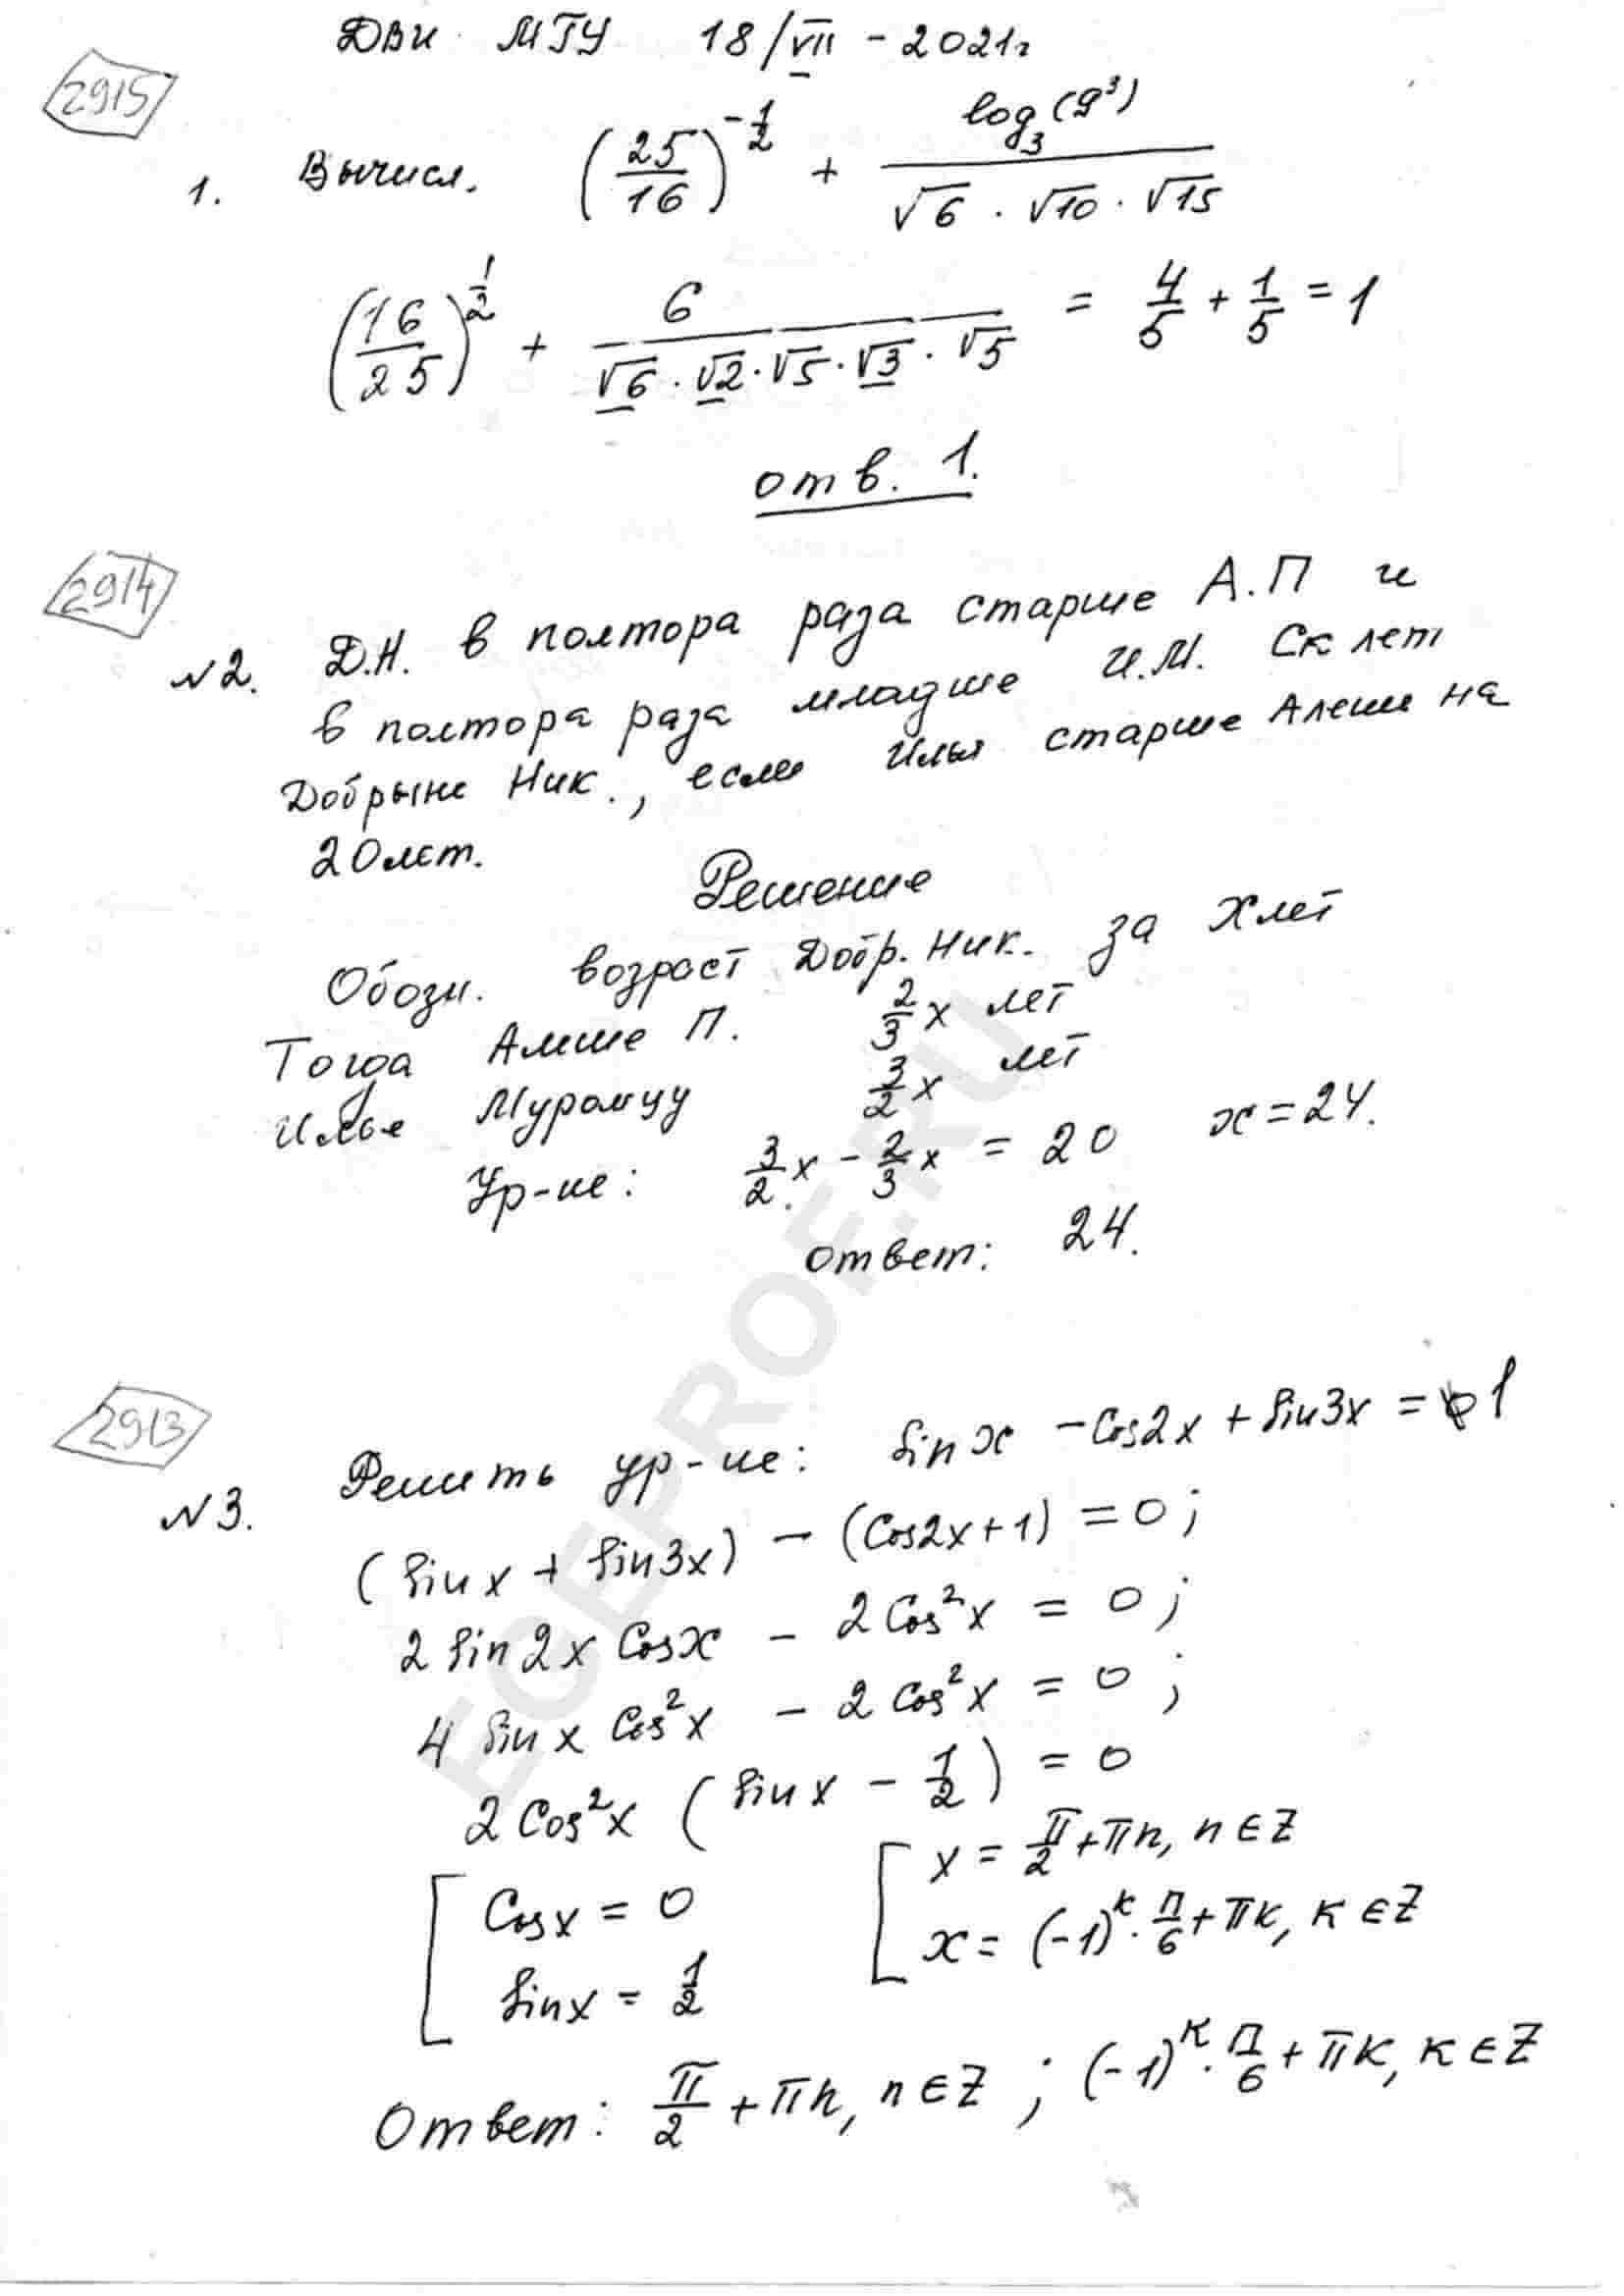 ДВИ МГУ 18/VII - 2021г
2915
1. Вычисл. (25/16)^(-1/2) + log₃(9³)/(√6 · √10 · √15)
(16/25)^(1/2) + 6/(√6 · √2 · √5 · √3 · √5) = 4/5 + 1/5 = 1
отв. 1.
2914
N2. Д.Н. в полтора раза старше А.П и
в полтора раза младше И.М. Ск лет
Добрыне Ник., если Илья старше Алеши на
20 лет.
Решение
Обозн. возраст Добр. Ник. за X лет
Тогда Алеше П. 2/3 x лет
Илье Муромцу 3/2 x лет
Ур-ие: 3/2 x - 2/3 x = 20 x = 24.
ответ: 24.
2913
N3. Решить ур-ие: sin x - cos2x + sin3x = 1
(sin x + sin3x) - (cos2x+1) = 0;
2 sin2x cosx - 2cos²x = 0;
4 sin x cos²x - 2 cos²x = 0;
2 cos²x (sin x - 1/2) = 0
[ cosx = 0 [ x = π/2 + πn, n ∈ Z
sinx = 1/2 x = (-1)^к · π/6 + πк, к ∈ Z
Ответ: π/2 + πn, n ∈ Z ; (-1)^к · π/6 + πк, к ∈ Z
EGEPROF.RU